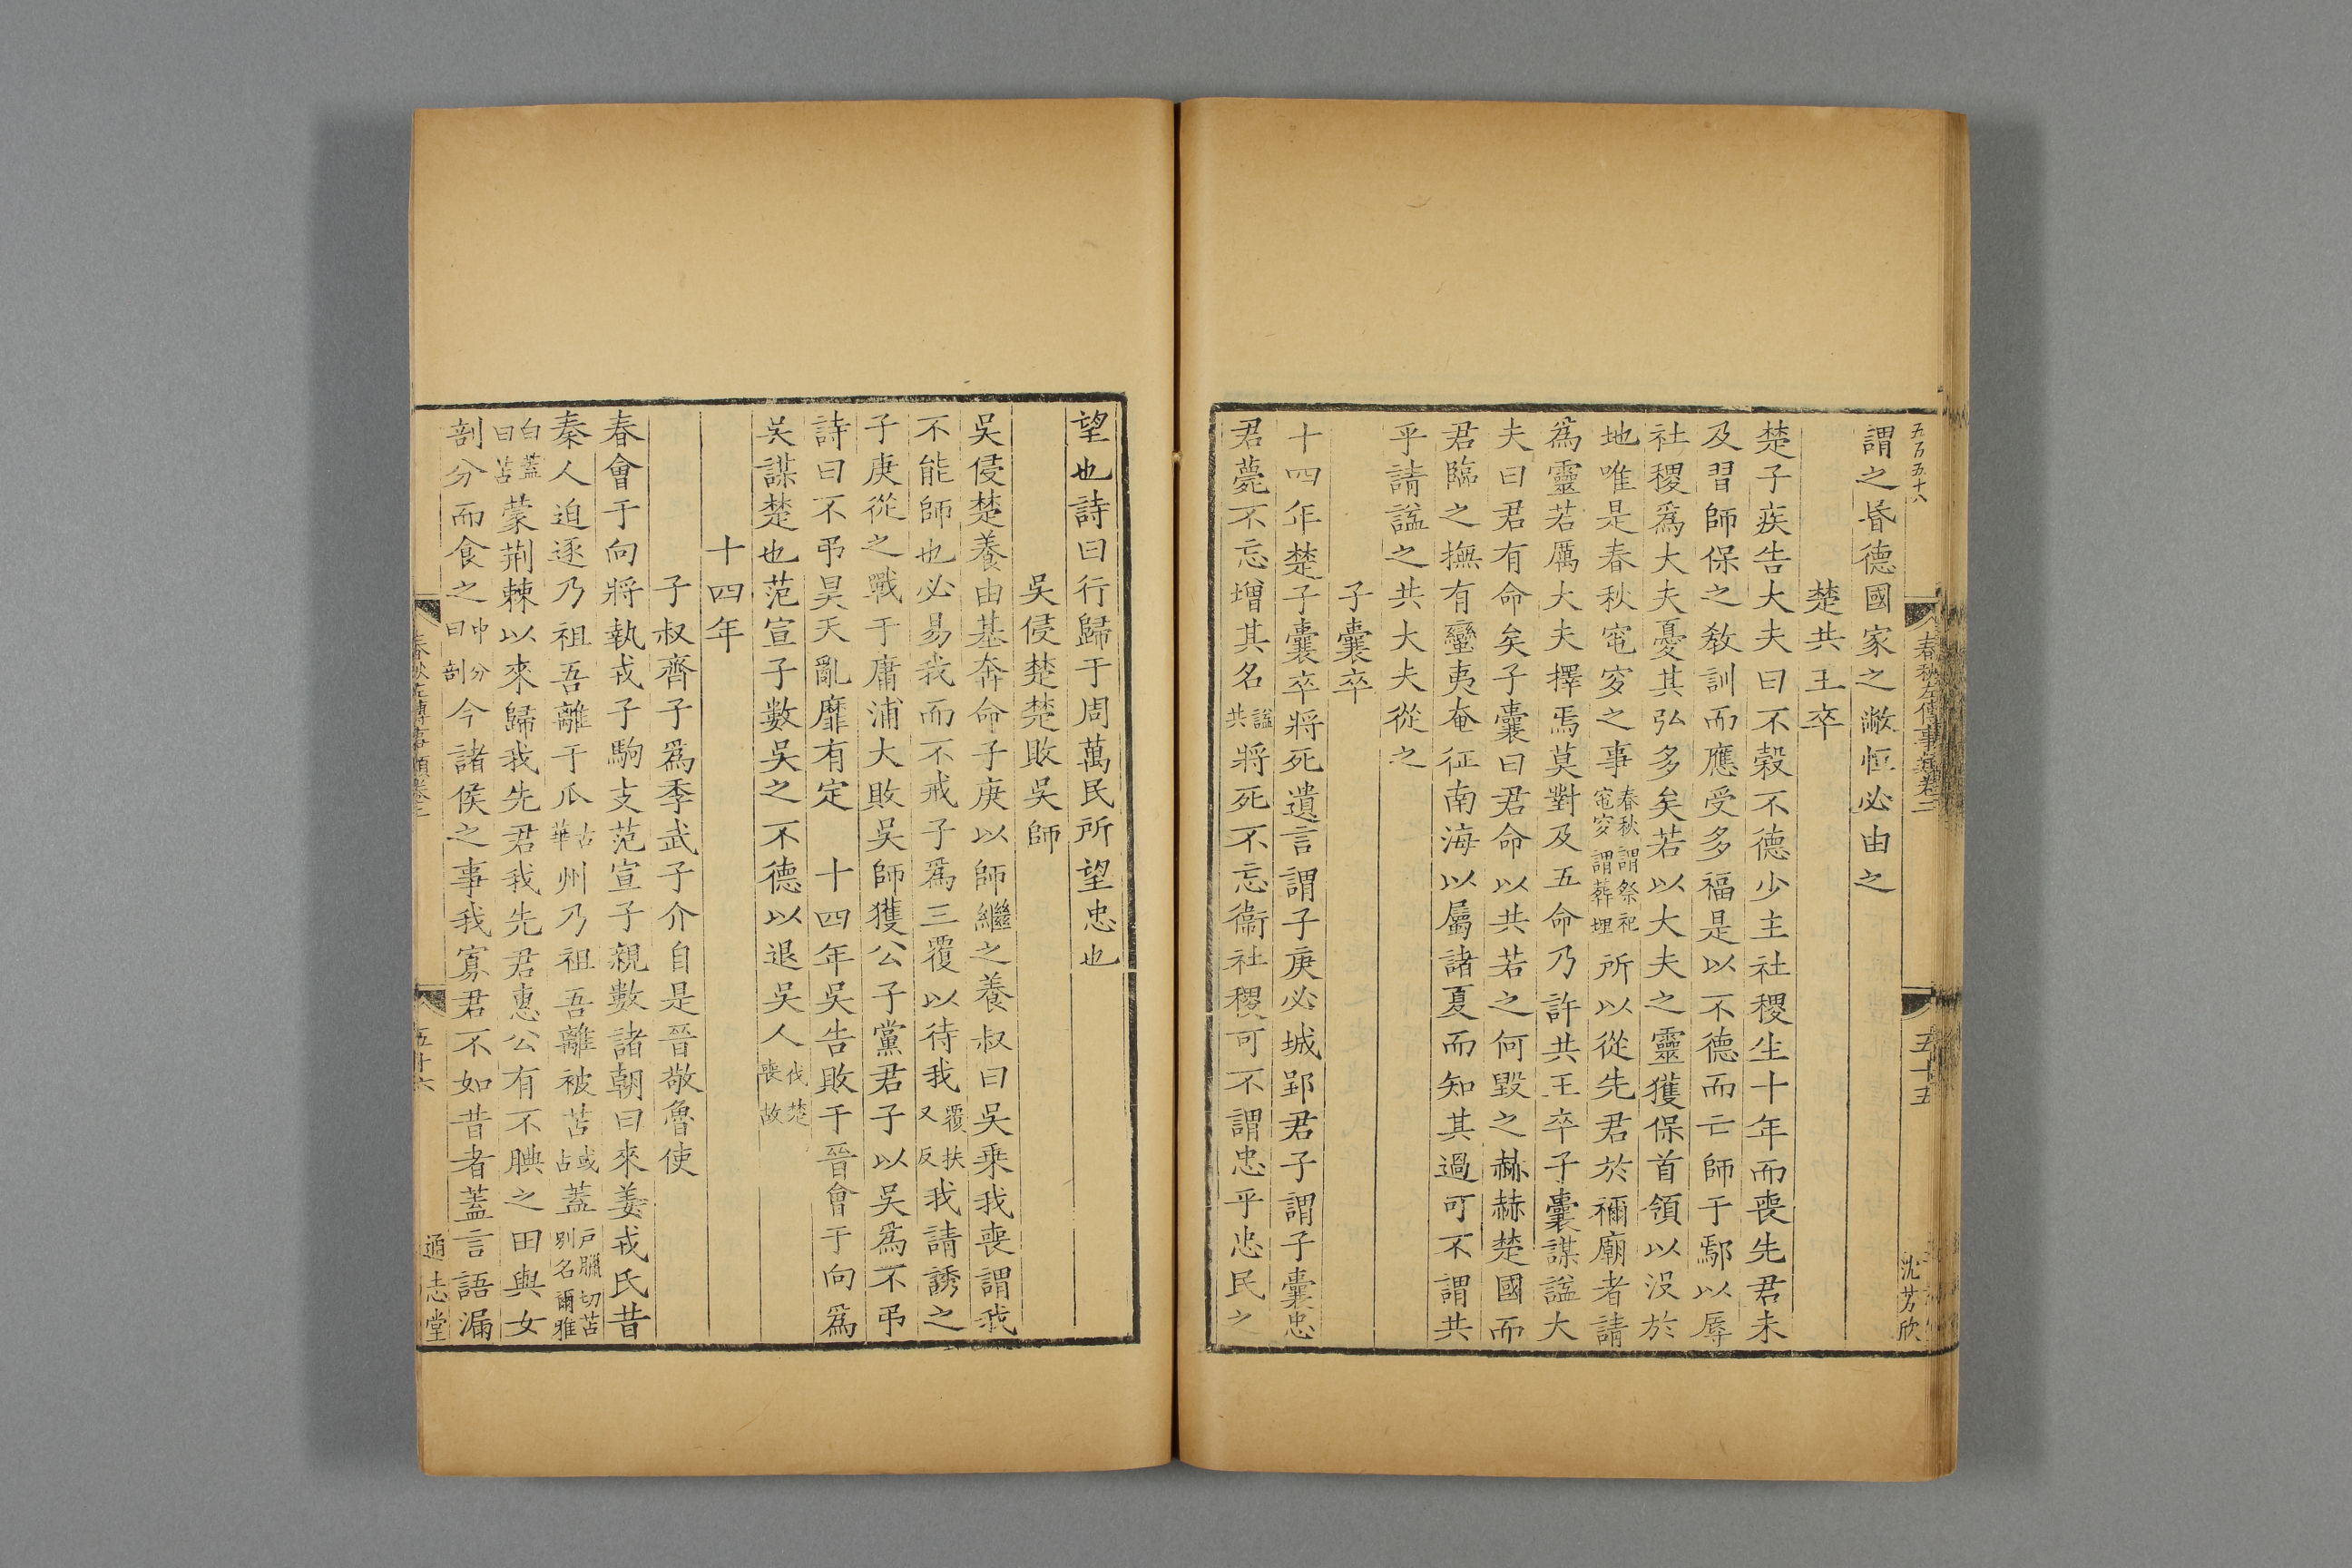 五百五十八
春秋左傳事類卷二
五十五
沈芳欣
謂之昏德國家之敝恒必由之
楚共王卒
楚子疾告大夫曰不穀不德少主社稷生十年而喪先君未
及習師保之教訓而應受多福是以不德而亡師于鄢以辱
社稷爲大夫憂其弘多矣若以大夫之靈獲保首領以没於
地唯是春秋窀穸之事春秋謂祭祀窀穸謂葬埋所以從先君於禰廟者請
爲靈若厲大夫擇焉莫對及五命乃許共王卒子囊謀諡大
夫曰君有命矣子囊曰君命以共若之何毀之赫赫楚國而
君臨之撫有蠻夷奄征南海以屬諸夏而知其過可不謂共
乎請諡之共大夫從之
子囊卒
十四年楚子囊卒將死遺言謂子庚必城郢君子謂子囊忠
君薨不忘增其名諡共將死不忘衞社稷可不謂忠乎忠民之
望也詩曰行歸于周萬民所望忠也
吳侵楚楚敗吳師
吳侵楚養由基奔命子庚以師繼之養叔曰吳乗我喪謂我
不能師也必易我而不戒子爲三覆以待我覆扶又反我請誘之
子庚從之戰于庸浦大敗吳師獲公子黨君子以吳爲不弔
詩曰不弔昊天亂靡有定　十四年吳告敗于晉會于向爲
吴謀楚也范宣子數吳之不德以退吳人伐楚喪故
十四年
子叔齊子爲季武子介自是晉敬魯使
春會于向將執戎子駒支范宣子親數諸朝曰來姜戎氏昔
秦人迫逐乃祖吾離于瓜古華州乃祖吾離被苫或占蓋戸臘切苫別名爾雅
白蓋曰苫蒙荆棘以來歸我先君我先君惠公有不腆之田與女
剖分而食之中分曰剖今諸侯之事我寡君不如昔者蓋言語漏
春秋左傳事類卷二
五十六
通志堂